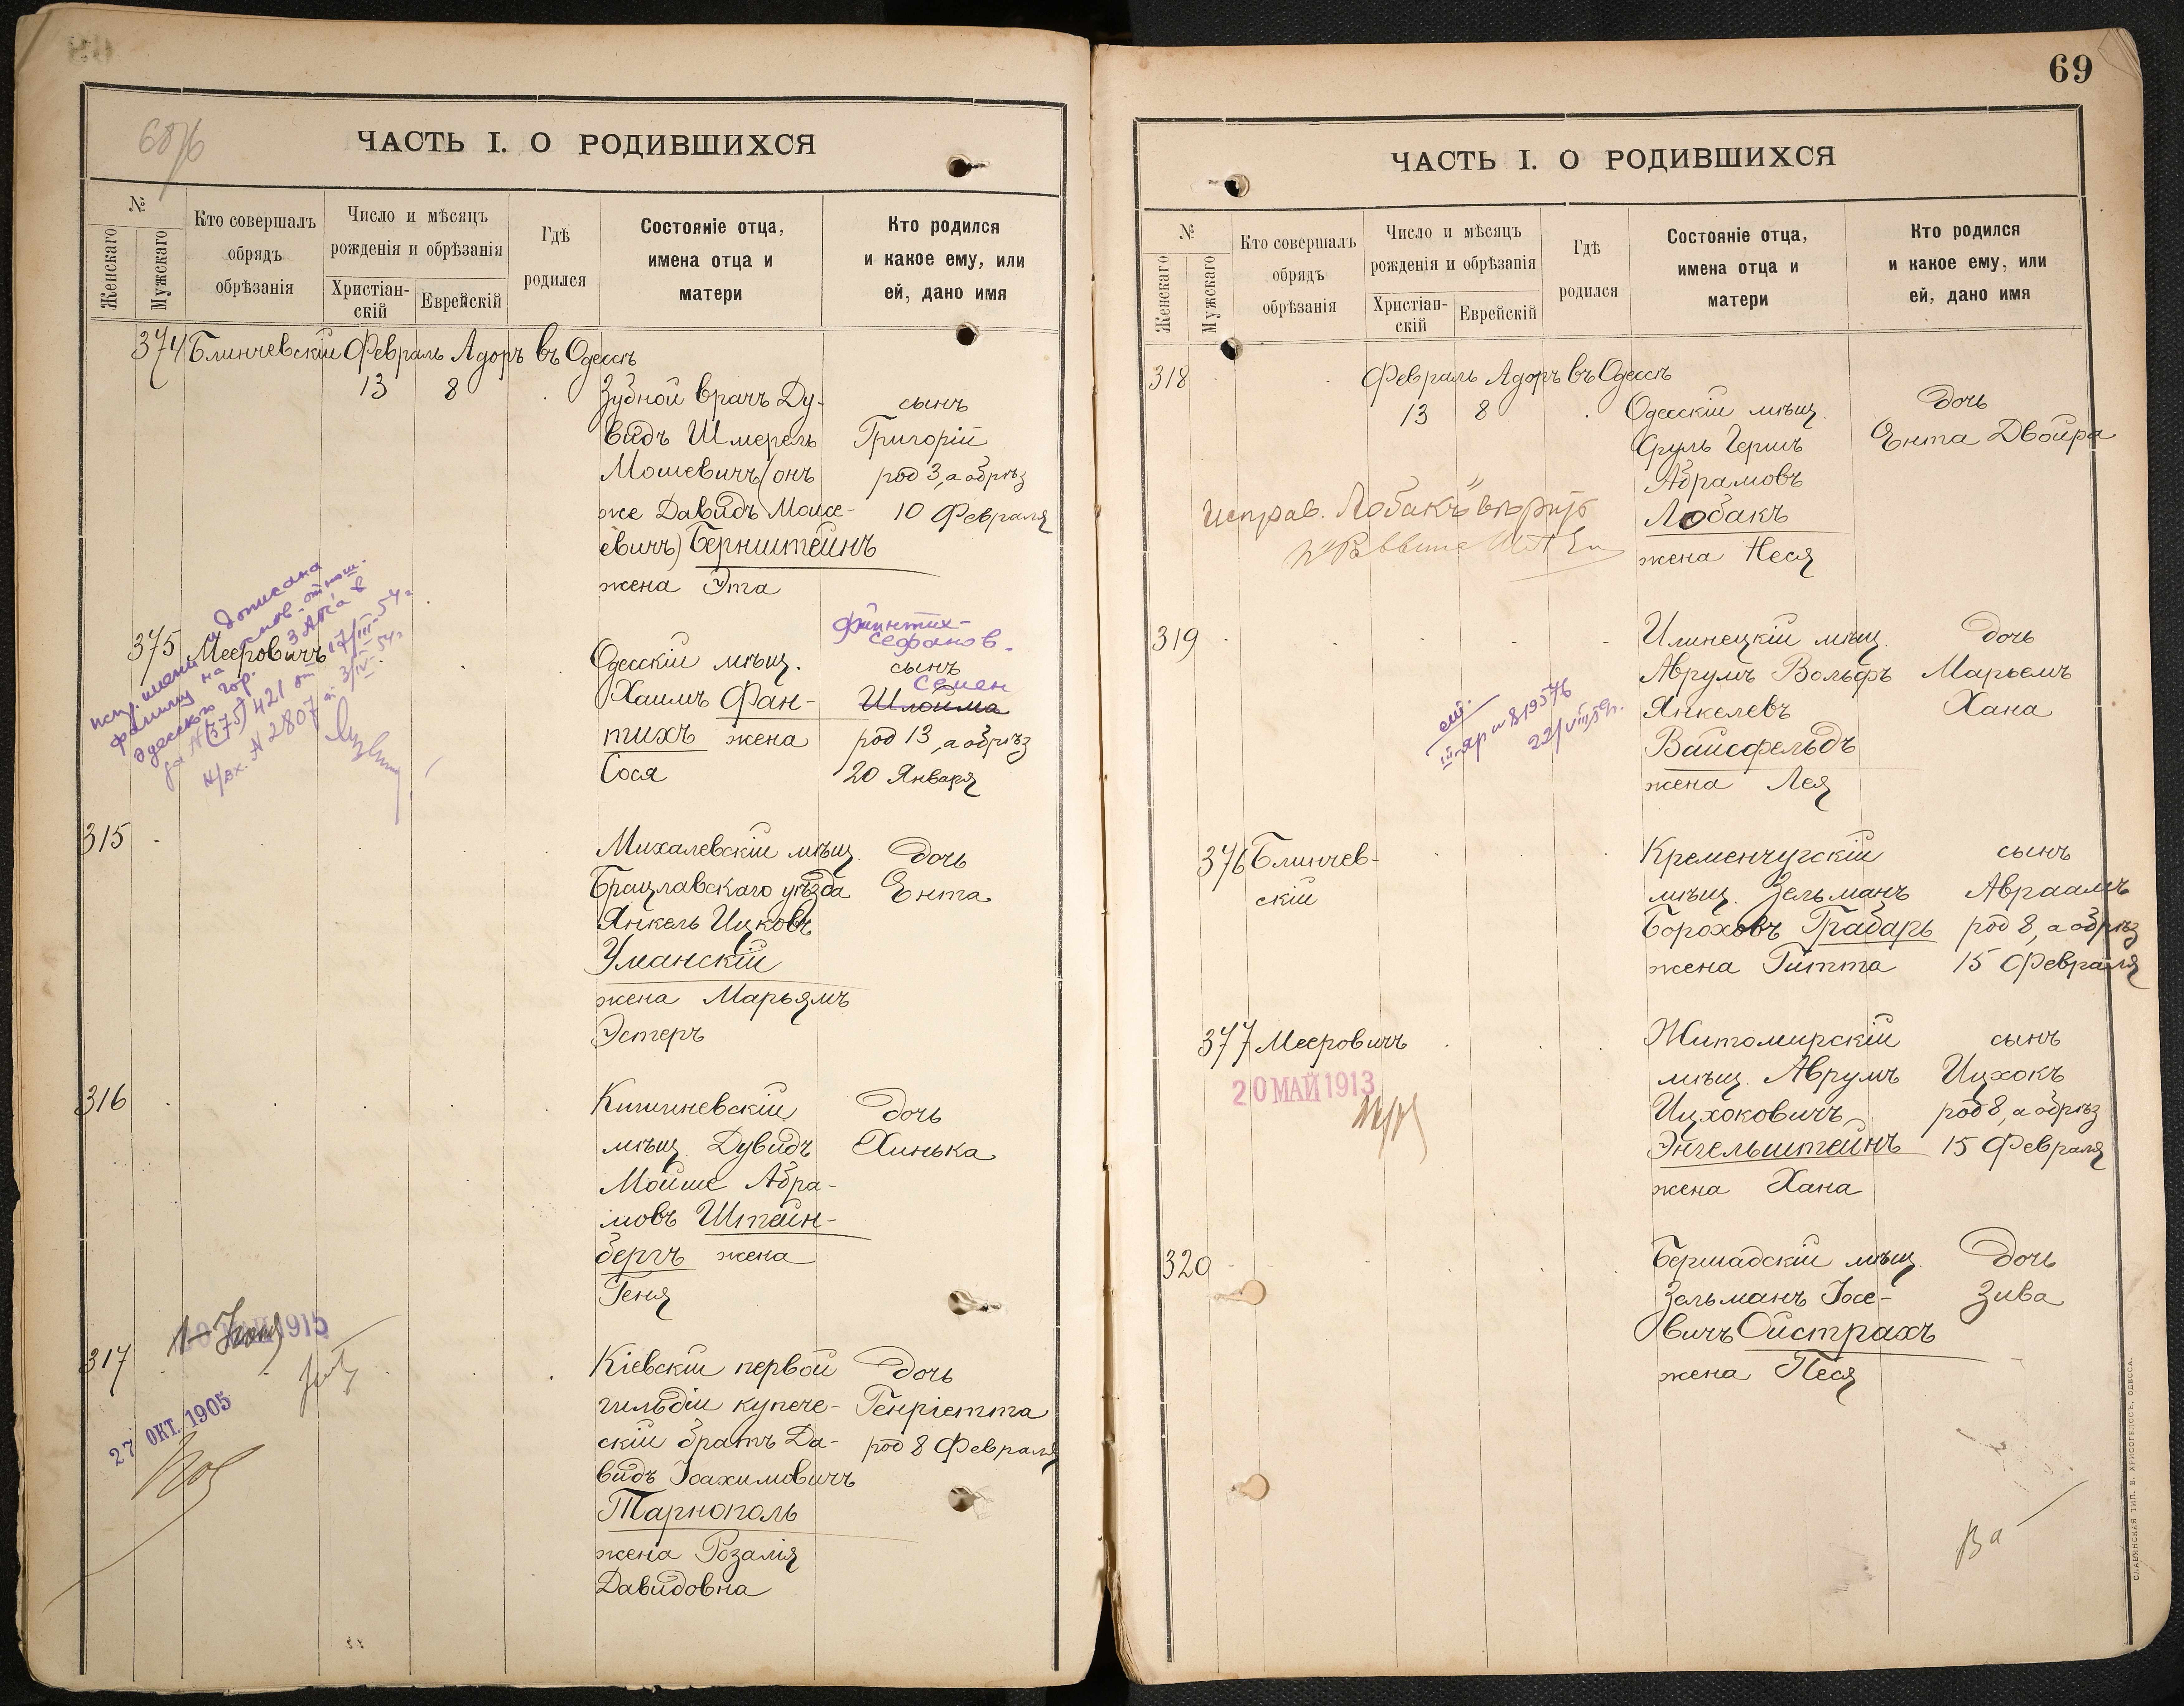 ЧАСТЬ I. О РОДИВШИХСЯ
№
Женскаго
Мужскаго
Кто совершалъ
обрядъ
обрѣзанія
Число и мѣсяцъ
рожденія и обрѣзанія
Христіан-
скій
Еврейскій
Гдѣ
родился
Состояніе отца,
имена отца и
матери
Кто родился
и какое ему, или
ей, дано имя
374 Блинчевскій Февраль Адоръ въ Одессѣ
13 8
Зубной врачъ Ду-
видъ Шмерель
Мошевичъ (онъ
же Давидъ Моисе-
евичъ) Бернштейнъ
жена Эта
сынъ
Григорій
род 3, а обрѣз
10 Февраля
375 Мееровичъ
Одесскій мѣщ.
Хаимъ Фан-
тихъ жена
Сося
сынъ
Семен
Шлойма
род 13, а обрѣз
20 Января
315
Михалевскій мѣщ.
Брацлавскаго уѣзда
Янкель Ицковъ
Уманскій
жена Марьямъ
Эстеръ
дочь
Ента
316
Кишиневскій
мѣщ. Дувидъ
Мойше Абра-
мовъ Штейн-
бергъ жена
Геня
дочь
Хинька
317
27 ОКТ. 1905
Кіевскій первой
гильдіи купече-
скій братъ Да-
видъ Іоахимовичъ
Тарнополь
жена Розалія
Давидовна
дочь
Генріетта
род 8 Февраля
69
ЧАСТЬ I. О РОДИВШИХСЯ
№
Женскаго
Мужскаго
Кто совершалъ
обрядъ
обрѣзанія
Число и мѣсяцъ
рожденія и обрѣзанія
Христіан-
скій
Еврейскій
Гдѣ
родился
Состояніе отца,
имена отца и
матери
Кто родился
и какое ему, или
ей, дано имя
318 Февраль Адоръ въ Одессѣ
13 8
Одесскій мѣщ.
Сруль Гершъ
Абрамовъ
Лобакъ
жена Неся
дочь
Ента Двойра
Исправ. "Лобакъ" вѣрить
319
Илинецкій мѣщ.
Аврумъ Вольфъ
Янкелевъ
Вайсфельдъ
жена Лея
дочь
Марьемъ
Хана
376 Блинчев-
скій
Кременчугскій
мѣщ. Зельманъ
Бороховъ Грабарь
жена Гитта
сынъ
Авраамъ
род 8, а обрѣз
15 Февраля
377 Мееровичъ
20 МАЙ 1913
Житомирскій
мѣщ. Аврумъ
Ицхоковичъ
Энгельштейнъ
жена Хана
сынъ
Ицхокъ
род 8, а обрѣз
15 Февраля
320
Бершадскій мѣщ.
Зельманъ Іосе-
вичъ Ойстрахъ
жена Песя
дочь
Зива
СЛАВЯНСКАЯ ТИП. Е. ХРИСОГЕЛОСЪ. ОДЕССА.